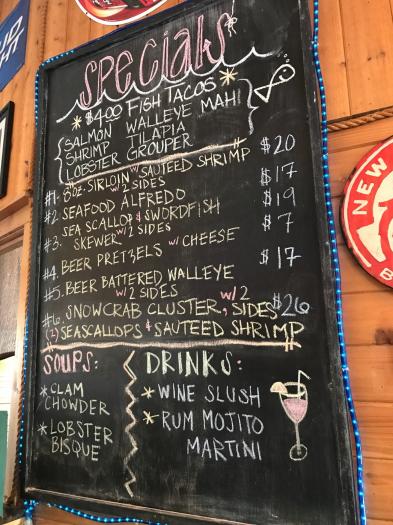 Specials
*$4.00 Fish Tacos*
Salmon Walleye Mahi
Shrimp Tilapia
Lobster Grouper
#1. 8oz. Sirloin w/ Sauteed Shrimp $20
w/ 2 sides
#2. Seafood Alfredo $17
#3. Sea Scallop & Swordfish $19
Skewer w/ 2 sides
#4. Beer Pretzels w/ cheese $7
#5. Beer Battered Walleye $17
w/ 2 sides
#6. Snowcrab Cluster, w/ 2 sides $26
(2) Seascallops & Sauteed Shrimp
Soups:
* Clam
Chowder
* Lobster
Bisque
Drinks:
* Wine Slush
* Rum Mojito
Martini
NEW